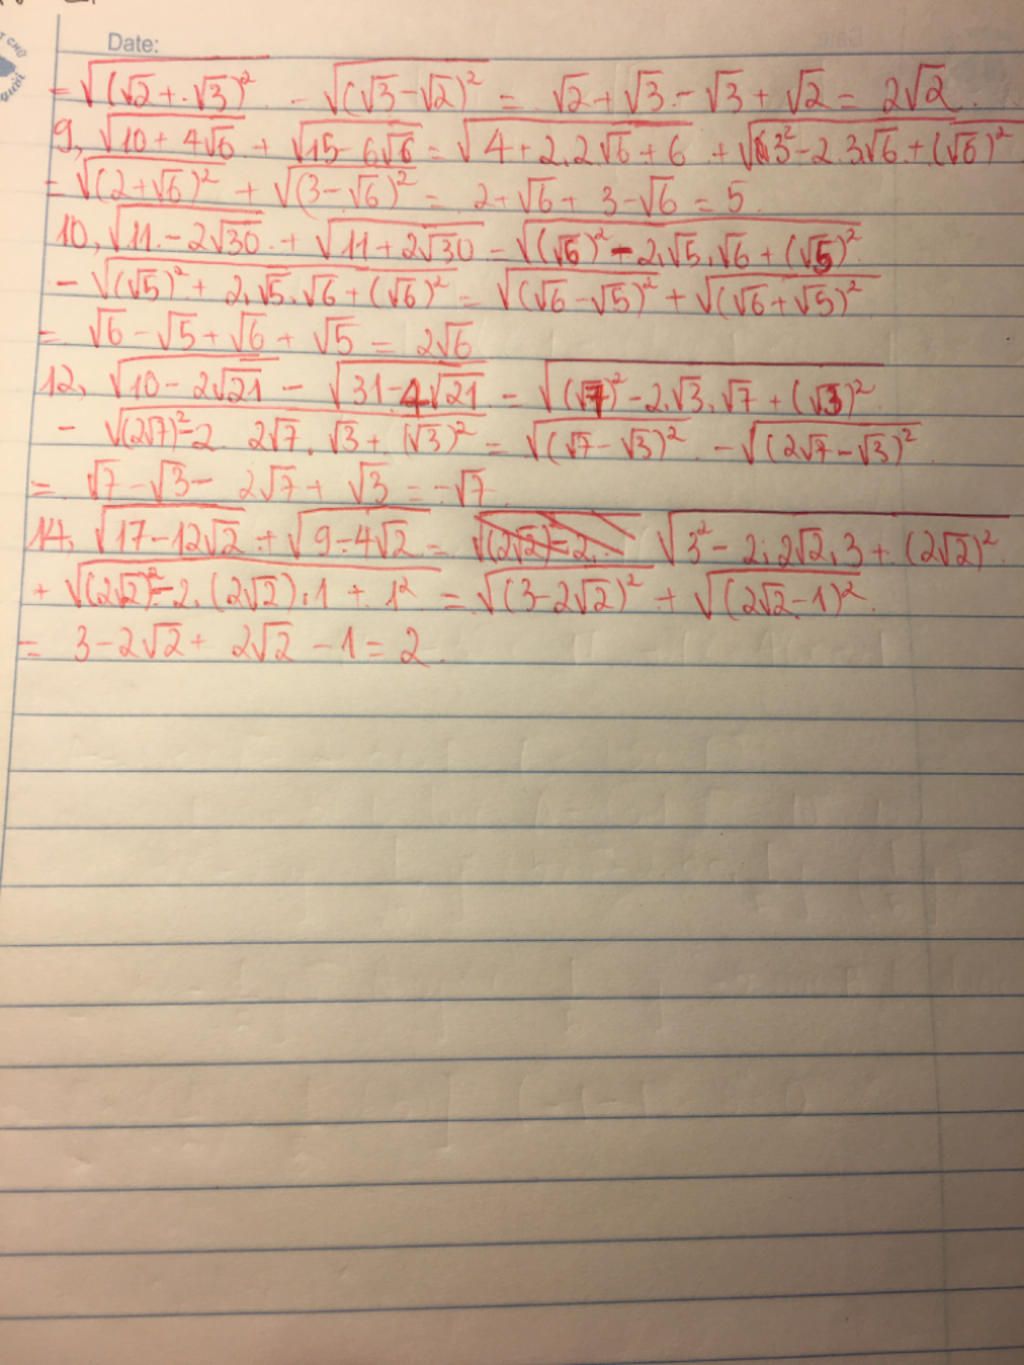 Date:
= √(√2 + √3)² - √(√3 - √2)² = √2 + √3 - √3 + √2 = 2√2.
9, √10 + 4√6 + √15 - 6√6 = √4 + 2.2√6 + 6 + √3² - 2.3√6 + (√6)²
= √(2+√6)² + √(3-√6)² = 2 + √6 + 3 - √6 = 5
10, √11 - 2√30 + √11 + 2√30 = √(√6)² - 2.√5.√6 + (√5)²
- √(√5)² + 2.√5.√6 + (√6)² = √(√6 - √5)² + √(√6 + √5)²
= √6 - √5 + √6 + √5 = 2√6
12, √10 - 2√21 - √31 - 4√21 = √(√7)² - 2.√3.√7 + (√3)²
- √(2√7)² - 2 2√7 . √3 + (√3)² = √(√7 - √3)² - √(2√7 - √3)²
= √7 - √3 - 2√7 + √3 = -√7
14, √17 - 12√2 + √9 - 4√2 = √3² - 2.2√2.3 + (2√2)²
+ √(2√2)² - 2.(2√2).1 + 1² = √(3 - 2√2)² + √(2√2 - 1)².
= 3 - 2√2 + 2√2 - 1 = 2.